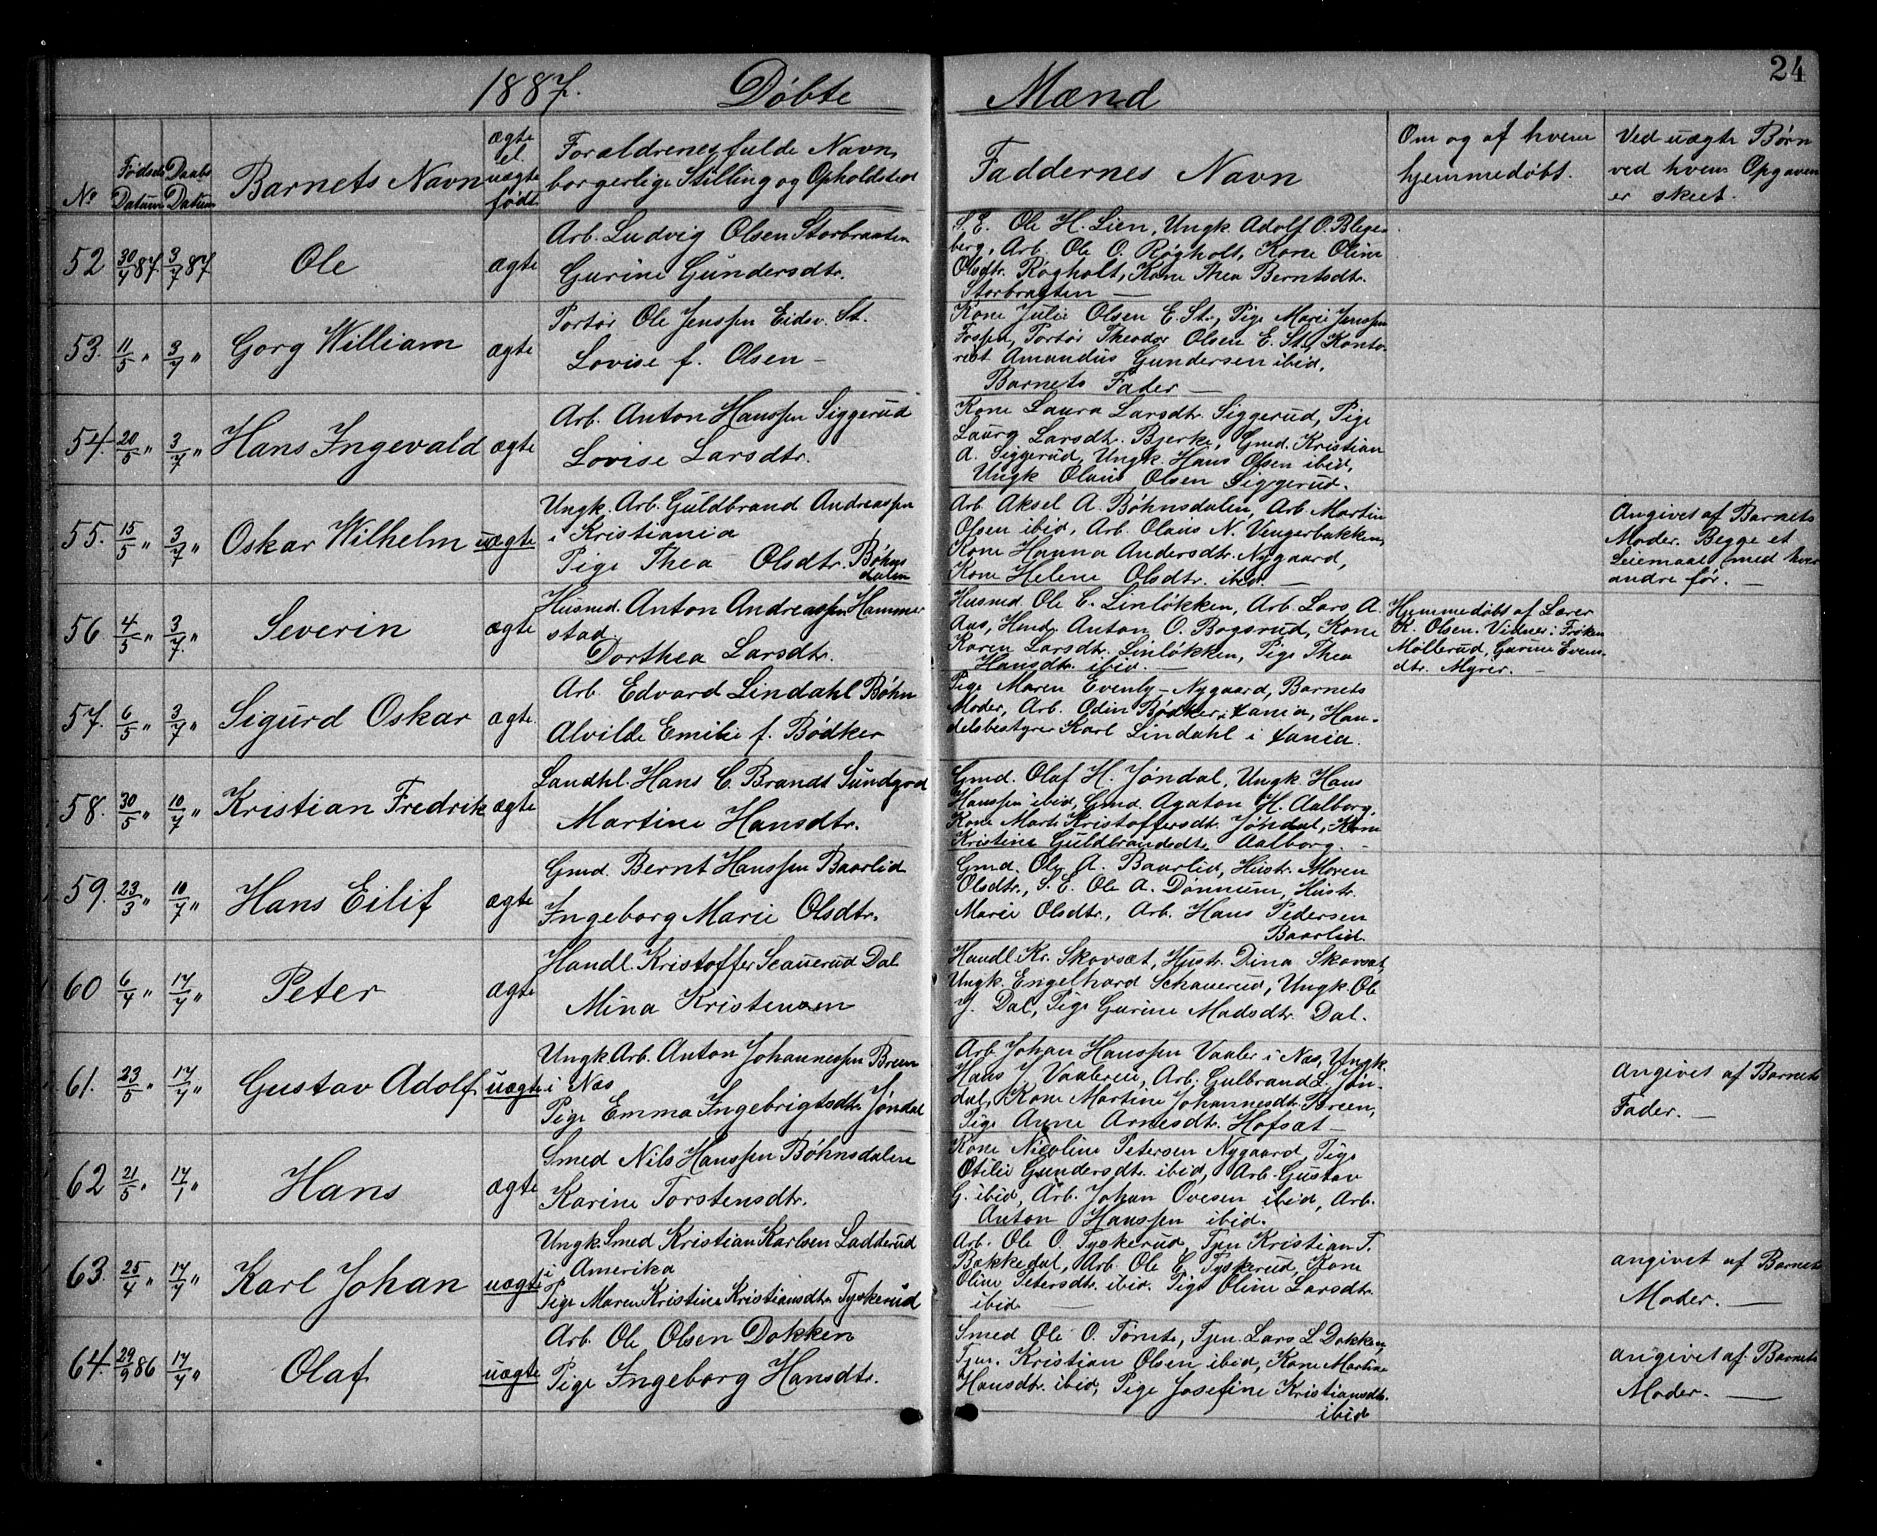 24
1887. Døbte Mænd
No
Fødsels Datum
Daabs Datum
Barnets Navn
ægte el. uægte født
Forældrenes fulde Navn, borgerlige Stilling og Opholdsted
Faddernes Navn
Om og af hvem hjemmedøbt.
Ved uægte Børn ved hvem Opgaven er skeet.
52 30/4 87. 3/7 87 Ole ægte
Arb. Ludvig Olsen Storbraaten
Gurine Gundersdtr.
S. E. Ole H. Lien, Ungk. Adolf O. Bleges-
berg, Arb. Ole O. Røgholt, Kone Oline
Olsdtr. Røgholt, Kone Thea Berntsdtr.
Storbraaten —
53. 11/5 " 3/7 " Gorg William ægte
Portør Ole Jenssen Eidsv. St.
Lovise f. Olsen —
Kone Julie Olsen E. St., Pige Marie Jenssen
Fossen, Portør Theodor Olsen E. St., Konto-
rist Amandus Gundersen ibid,
Barnets Fader —
54. 20/5 " 3/7 " Hans Ingevald ægte
Arb. Anton Hanssen Siggerud
Lovise Larsdtr.
Kone Laura Larsdtr. Siggerud, Pige
Laura Larsdtr. Bjerke, Gmd. Kristian
A. Siggerud, Ungk. Hans Olsen ibid,
Ungk Olaus Olsen Siggerud.
55. 15/5 " 3/7 " Oskar Wilhelm uægte
Ungk. Arb. Guldbrand Andreassen
i Kristiania
Pige Thea Olsdtr. Bøhns
dalen
Arb Aksel A. Bøhnsdalen, Arb Martin
Olsen ibid, Arb. Olaus N. Vengerbakken,
Kone Hanna Andersdtr. Nygaard,
Kone Helene Olsdtr. ibid —
Angivet af Barnets
Moder. Begge et
Leiemaal med hver
andre før. —
56 4/5 " 3/7. " Severin ægte
Husmd. Anton Andreassen Hammer
stad
Dorthea Larsdtr.
Husmd. Ole C. Linløkken, Arb. Lars A.
Aas, Hmd. Anton O. Bogsrud, Kone
Karen Larsdtr. Linløkken, Pige Thea
Hansdtr. ibid. —
Hjemmedøbt af Lærer
K. Olsen. Vidner: Frøken
Møllerud, Gurine Evens-
dtr. Myrer.
57. 6/5 " 3/7 " Sigurd Oskar ægte
Arb. Edvard Lindahl Bøhn
Alvilde Emilie f. Bødker
Pige Maren Evenby - Nygaard, Barnets
Moder, Arb. Odin Bødker i Xania, Han-
delsbestyrer Karl Lindahl i Xania.
58. 30/5 " 10/7 " Kristian Fredrik ægte
Landhl. Hans C. Brands Sundgrd
Martine Hansdtr.
Gmd. Olaf H. Jøndal, Ungk. Hans
Hanssen ibid, Gmd. Agaton H. Aalborg,
Kone Marti Kristoffersdtr. Jøndal, Kone
Kristine Guldbrandsdtr. Aalborg. —
59. 23/3 " 10/7 " Hans Eilif ægte
Gmd. Bernt Hanssen Baarlid
Ingeborg Marie Olsdtr.
Gmd. Ole A. Baarlid, Hustr. Maren
Olsdtr., S. E. Ole A. Dønnum, Hustr.
Marie Olsdtr., Arb. Hans Pedersen
Baarlid.
60 6/4 " 17/7 " Peter ægte
Handl. Kristoffer Scauerud Dal
Mina Kristensen
Handl. Kr. Skovsæt, Hustr. Dina Skovsæt,
Ungk. Engelhard Schauerud, Ungk. Ole
J. Dal, Pige Gurine Madsdtr. Dal.
61. 23/5 " 17/7 " Gustav Adolf uægte
Ungk Arb. Anton Johannessen Breen
i Næs
Pige Emma Ingebrigtsdtr Jøndal
Arb. Johan Hanssen Vaaler i Næs, Ungk.
Hans J. Vaaleren, Arb. Gulbrand L. Jøn-
dal, Kone Martine Johannesdtr. Breen,
Pige Anne Arnesdtr. Hofsæt —
Angivet af Barnets
Fader. —
62 21/5 " 17/1 " Hans ægte
Smed Nils Hanssen Bøhnsdalen
Karine Torstensdtr.
Kone Nicoline Petersen Nygaard, Pige
Otilie Gundersdtr. ibid, Arb. Gustav
G. ibid, Arb. Johan Ovesen ibid, Arb.
Anton Hanssen ibid.
63. 25/4 " 17/7 " Karl Johan uægte
Ungk. Smed Kristian Karlsen Ladderud
i Amerika
Pige Maren Kristine Kristiansdtr Tyskerud
Arb. Ole O. Tyskerud, Tjen Kristian T.
Bakkedal, Arb. Ole C. Tyskerud, Kone
Oline Petersdtr. ibid. Pige Oline Larsdtr.
ibid —
angivet af Barnets
Moder. —
64. 29/9 86 17/7 " Olaf uægte
Arb. Ole Olsen Dokken
Pige Ingeborg Hansdtr.
Smed Ole O. Tømte, Tjen. Lars L. Dokken,
Tjen. Kristian Olsen ibid, Kone Martine
Hansdtr. ibid, Pige Josefine Kristiansdtr.
ibid
angivet af Barnets
Moder. —